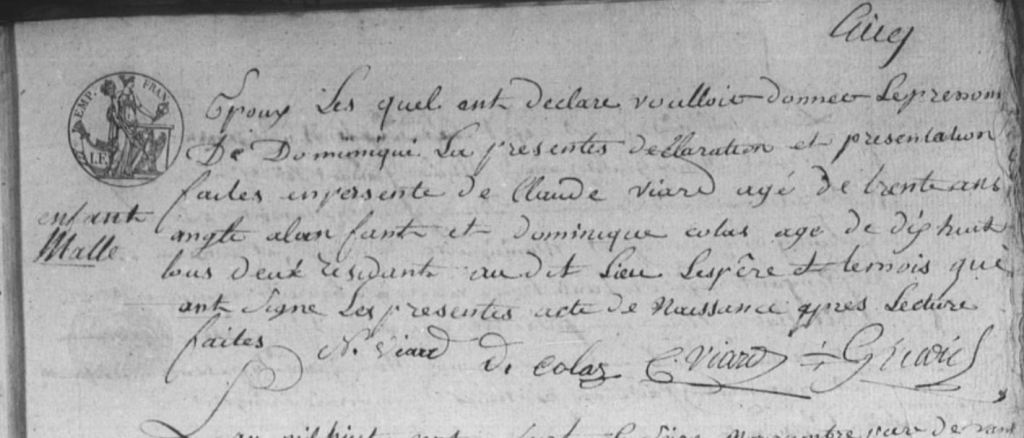 Cinq
EMP. FRAN
1.F.
Epoux Les quel ont declare voulloir donner Le prenom
De Dominique La presentes declaration et presentation
faites enpersente de Claude viard agé de trente ans
enfant
Malle
angle alan fant et dominique colas age de dix huit
tous deux residant au dit Lieu Lespêre et temois qui
ont Signe Les presentes acte de Naissance apres Lecture
faites N. Viard D. colas C. Viard